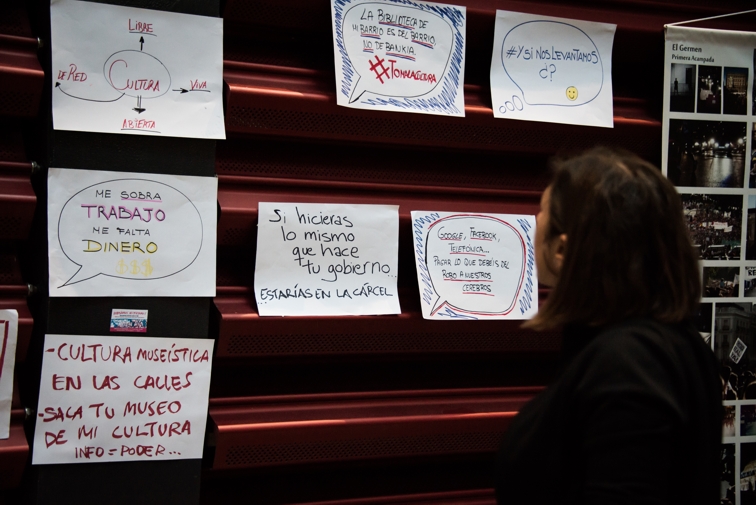 LIBRE
DE RED
CULTURA
VIVA
ABIERTA
LA BIBLIOTECA DE
MI BARRIO ES DEL BARRIO,
NO DE BANKIA
#TOMALACULTURA
#Y SI NOS LEVANTAMOS
¿?
El Germen
Primera Acampada
ME SOBRA
TRABAJO
ME FALTA
DINERO
$$$
Si hicieras
lo mismo
que hace
tu gobierno...
ESTARÍAS EN LA CÁRCEL
GOOGLE, FACEBOOK,
TELEFÓNICA...
PAGAR LO QUE DEBÉIS DEL
ROBO A NUESTROS
CEREBROS
- CULTURA MUSEÍSTICA
EN LAS CALLES
- SACA TU MUSEO
DE MI CULTURA
INFO = PODER...